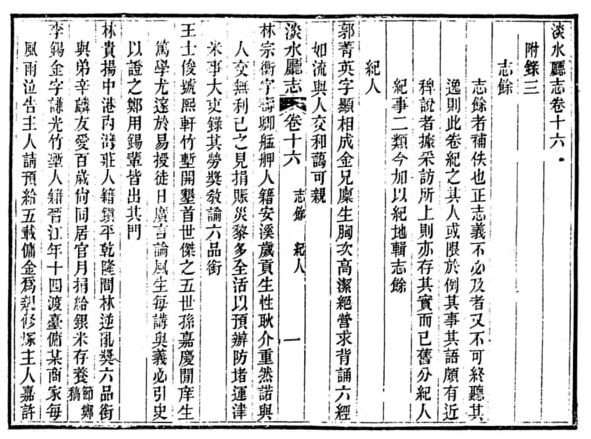 淡水廳志卷十六
附錄三
志餘
志餘者補佚也正志義不必及者又不可終聽其
逸則此卷紀之其人或限於例其事其語頗有近
稗說者據采訪所上則亦存其實而已舊分紀人
紀事二類今加以紀地輯志餘
紀人
郭菁英字顯相成金兄廩生胸次高潔絕營求背誦六經
如流與人交和藹可親
淡水廳志 卷十六 志餘 紀人 一
林宗衡字卿艋舺人籍安溪歲貢生性耿介重然諾與
人交無利己之見捐賑災黎多全活以預辦防堵運津
米事大吏錄其勞獎敎諭六品銜
王士俊號熙軒竹塹開墾首世傑之五世孫嘉慶閒庠生
篤學尤邃於易授徒日廣言論風生每講與義必引史
以證之鄭用錫輩皆出其門
林貴揚中港內灣莊人籍鎮平乾隆間林逆亂獎六品銜
與弟辛麟友愛百歲尙同居官月捐給銀米存養節鄭稿
李錫金字謙光竹塹人籍晉江年十四渡臺傭某商家每
風雨泣吿主人請預給五載傭金爲親修塚主人嘉許